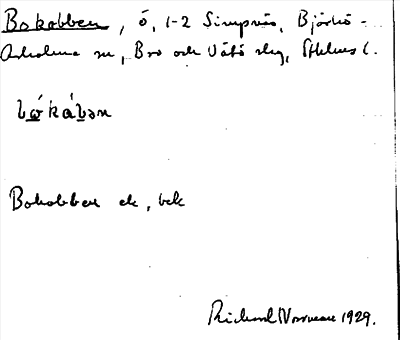 Bokobben, ö, 1-2 Simpnäs, Björkö-
Arholma sn, Bro och Vätö skg, Sthlms l.
bώkåbən
Bokobben ek, bek
Rickard Norrman 1929.